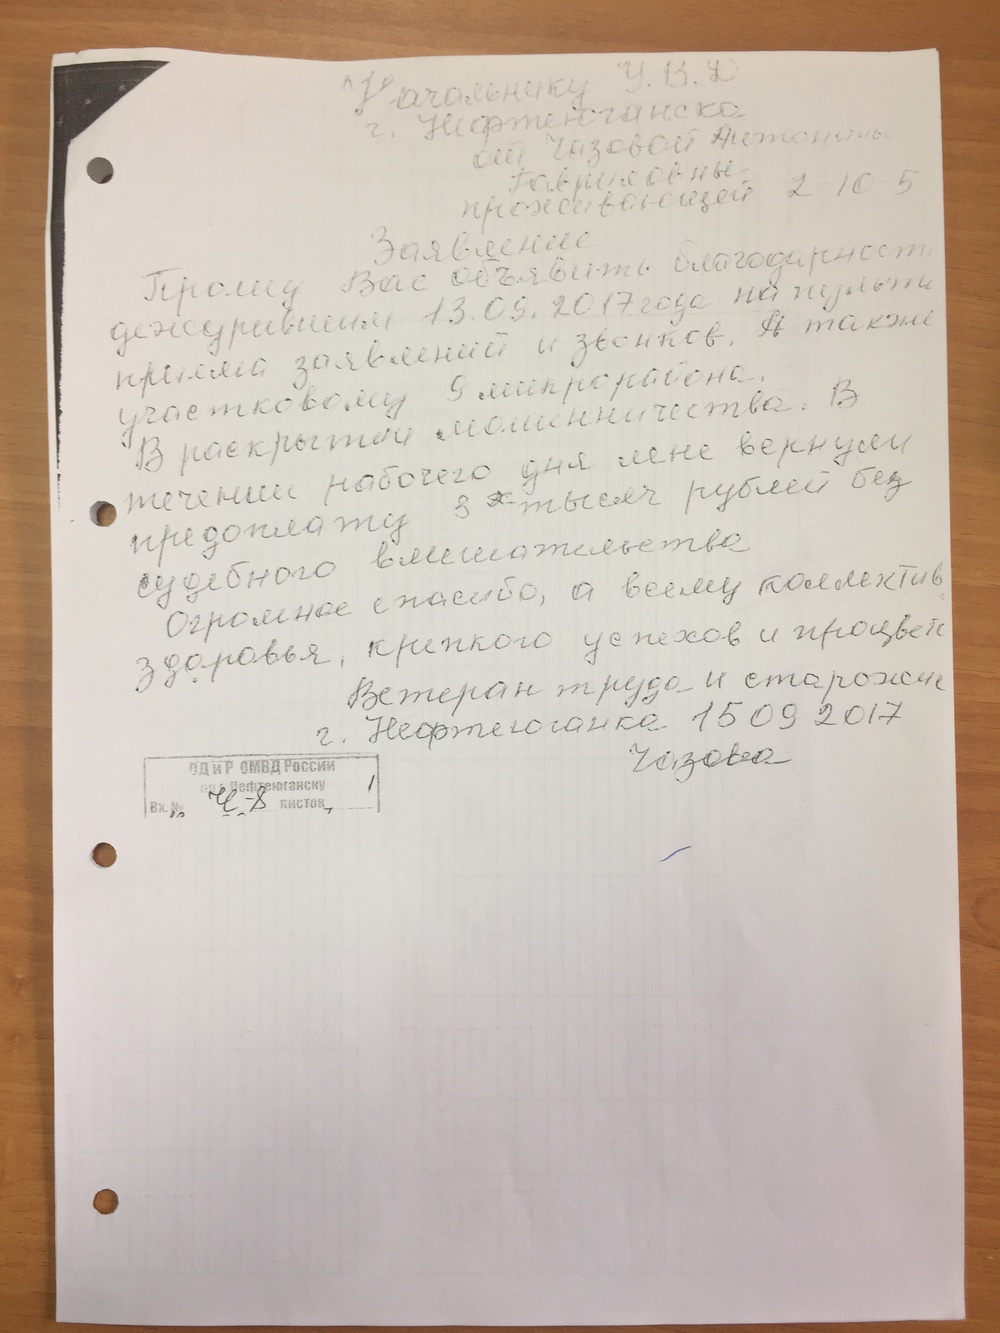 Начальнику У.В.Д
г. Нефтеюганска
от Чазовой Антонины
Гавриловны
проживающей 2-10-5
Заявление
Прошу Вас объявить благодарность
дежурившим 13.09.2017 года на пульте
приёма заявлений и звонков. А также
участковому 9 микрорайона.
В раскрытии мошенничества. В
течении рабочего дня мне вернули
предоплату 3 тысяч рублей без
судебного вмешательства
Огромное спасибо, а всему коллектив
здоровья, крепкого успехов и процвет
Ветеран труда и старожил
г. Нефтеюганка 15 09 2017
Чазова
ОД и Р ОМВД России
по г. Нефтеюганску
Вх. № Ч-8 листов 1